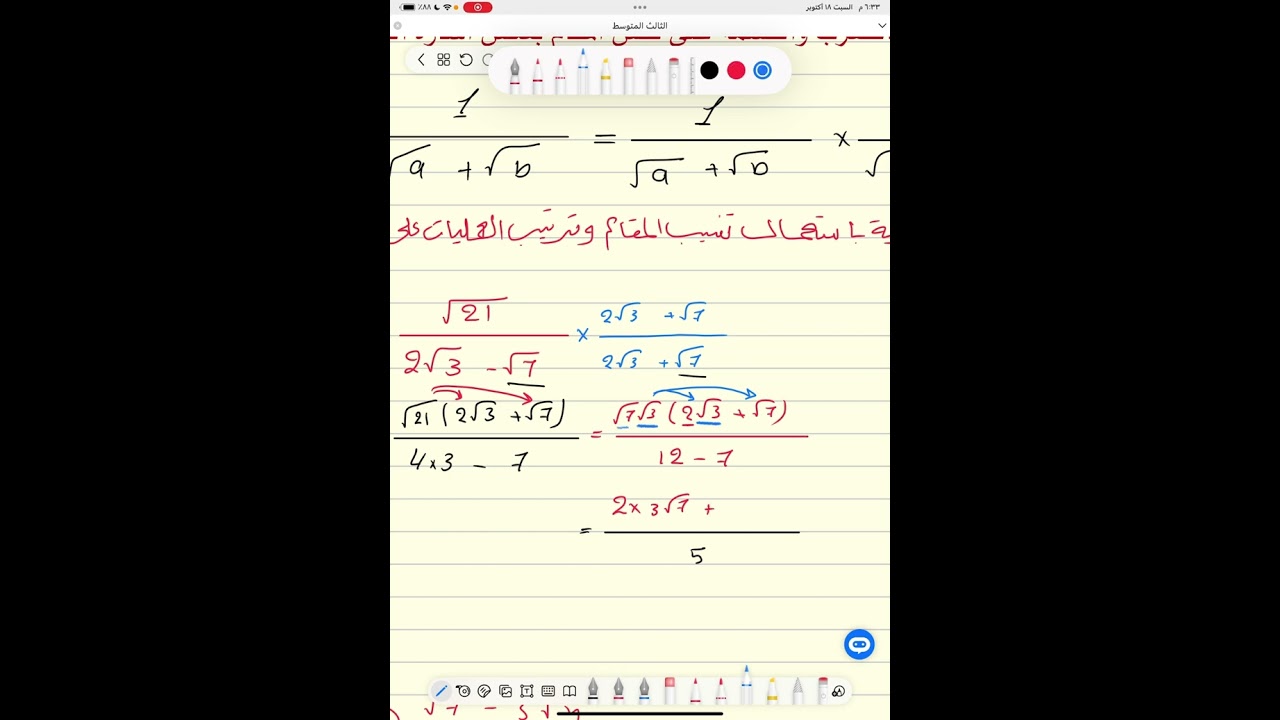 ٦:٣٣ م السبت ١٨ أكتوبر ••• ٪٨٨
الثالث المتوسط
1 = 1 ×
√a + √b √a + √b √
باستعمال تنسيب المقام وترتيب العمليات على
√21 × 2√3 + √7
2√3 - √7 2√3 + √7
√21 (2√3 + √7) = √7 √3 (2√3 + √7)
4×3 - 7 12 - 7
= 2× 3√7 +
5